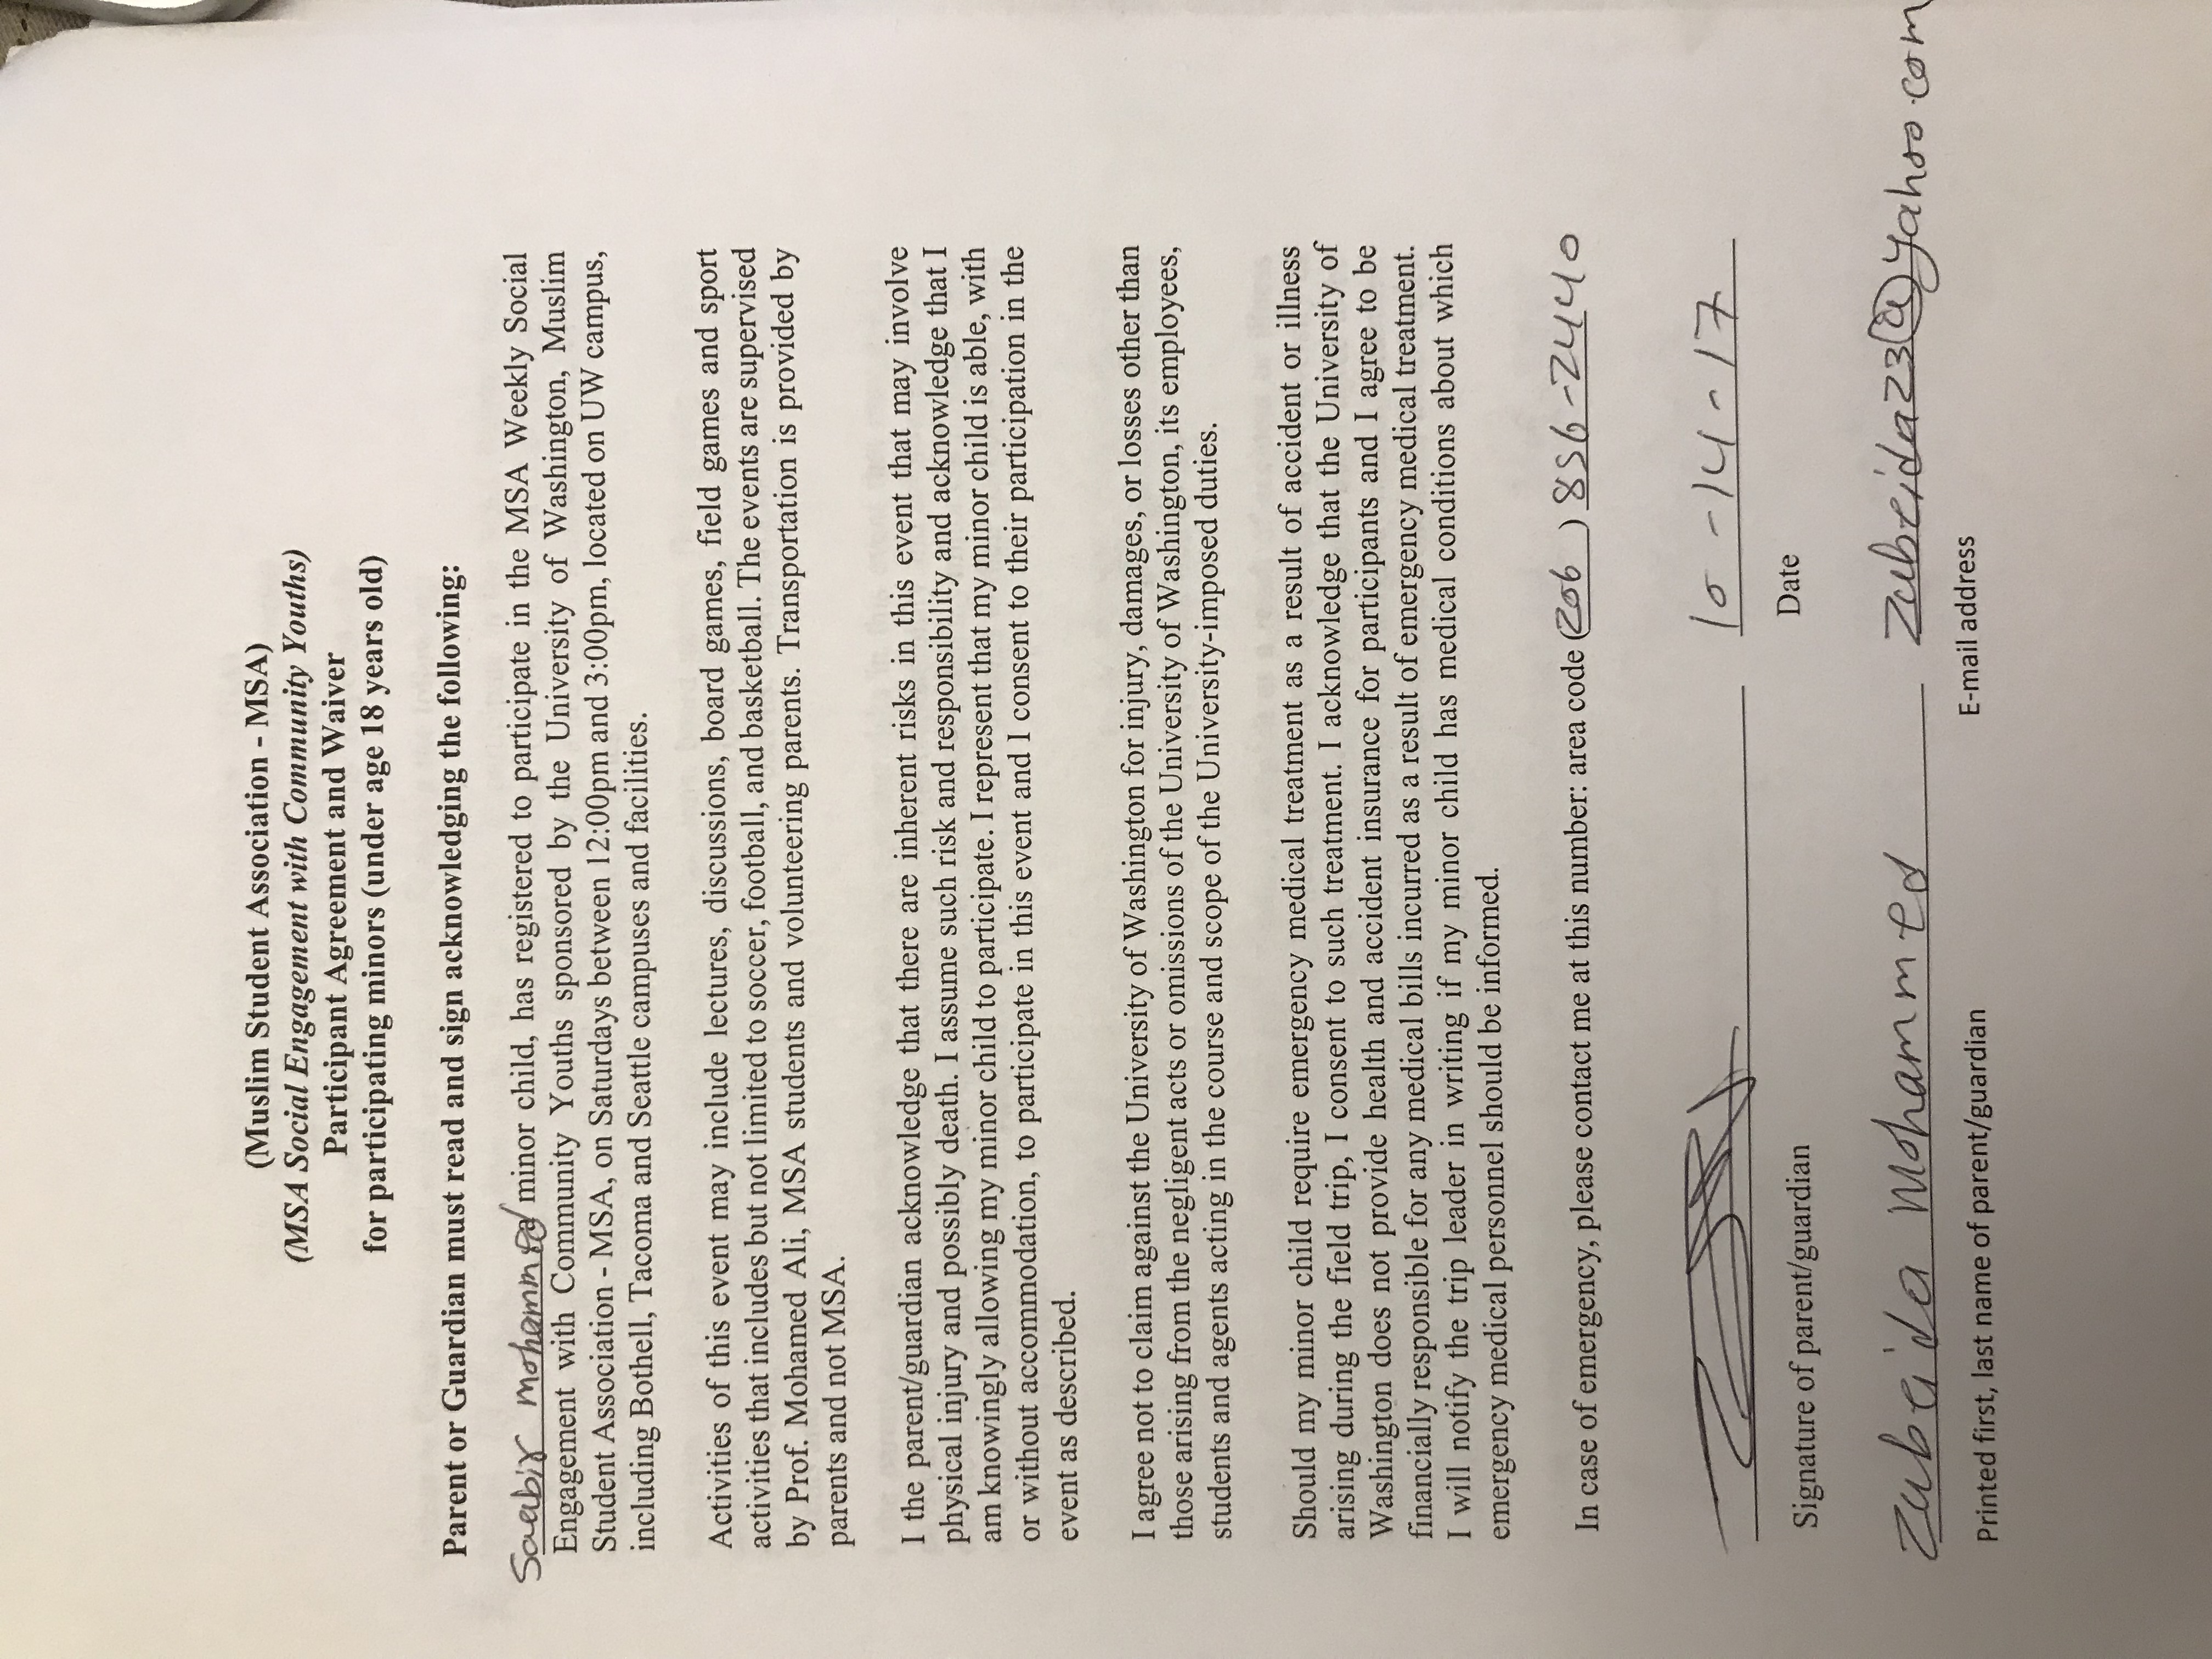 (Muslim Student Association - MSA)
(MSA Social Engagement with Community Youths)
Participant Agreement and Waiver
for participating minors (under age 18 years old)
Parent or Guardian must read and sign acknowledging the following:
Saabir Mohammed minor child, has registered to participate in the MSA Weekly Social
Engagement with Community Youths sponsored by the University of Washington, Muslim
Student Association - MSA, on Saturdays between 12:00pm and 3:00pm, located on UW campus,
including Bothell, Tacoma and Seattle campuses and facilities.
Activities of this event may include lectures, discussions, board games, field games and sport
activities that includes but not limited to soccer, football, and basketball. The events are supervised
by Prof. Mohamed Ali, MSA students and volunteering parents. Transportation is provided by
parents and not MSA.
I the parent/guardian acknowledge that there are inherent risks in this event that may involve
physical injury and possibly death. I assume such risk and responsibility and acknowledge that I
am knowingly allowing my minor child to participate. I represent that my minor child is able, with
or without accommodation, to participate in this event and I consent to their participation in the
event as described.
I agree not to claim against the University of Washington for injury, damages, or losses other than
those arising from the negligent acts or omissions of the University of Washington, its employees,
students and agents acting in the course and scope of the University-imposed duties.
Should my minor child require emergency medical treatment as a result of accident or illness
arising during the field trip, I consent to such treatment. I acknowledge that the University of
Washington does not provide health and accident insurance for participants and I agree to be
financially responsible for any medical bills incurred as a result of emergency medical treatment.
I will notify the trip leader in writing if my minor child has medical conditions about which
emergency medical personnel should be informed.
In case of emergency, please contact me at this number: area code (206) 856-2440
10-14-17
Signature of parent/guardian Date
Zubeida Mohammed zubeida23@yahoo.com
Printed first, last name of parent/guardian E-mail address